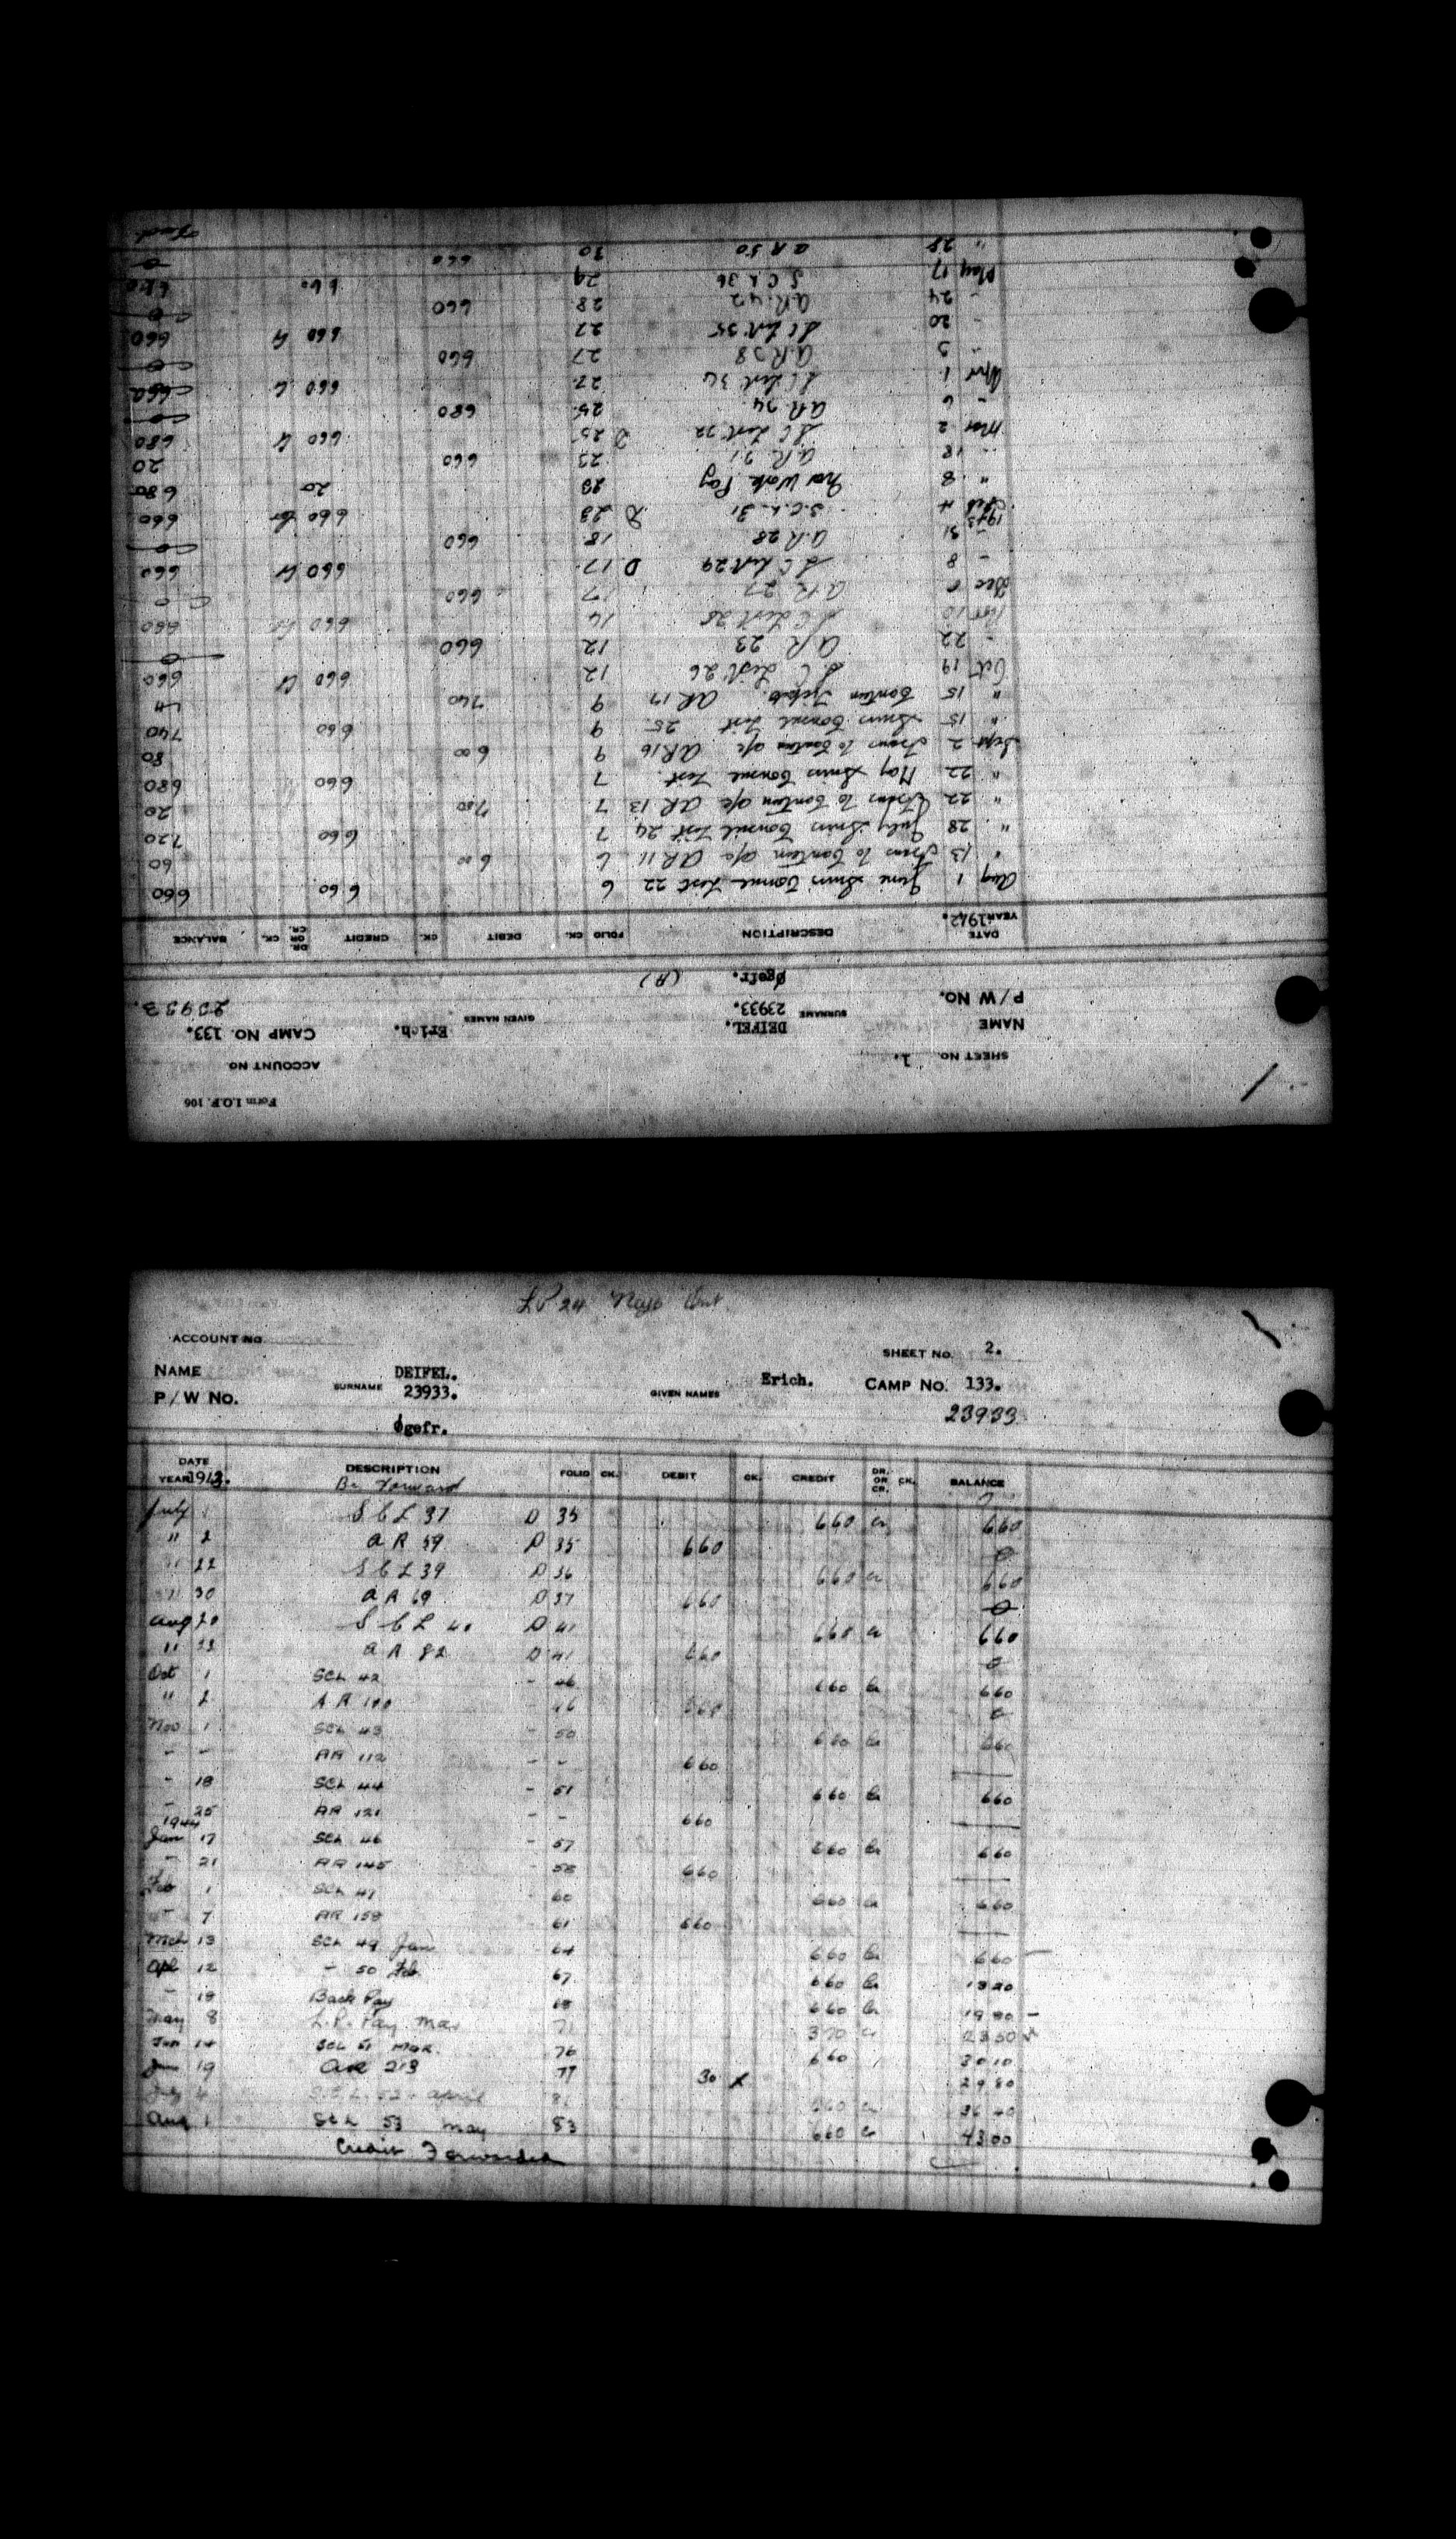 Form I.O.P. 106
ACCOUNT NO
SHEET NO. 1.
NAME SURNAME DEIFEL. GIVEN NAMES Erich. CAMP NO. 133.
P/W NO. 23933. 23933.
Ogefr. (A)
DATE YEAR 1942. DESCRIPTION FOLIO CK. DEBIT CK. CREDIT DR. OR CR. CK. BALANCE
Aug 1 June Swiss Consul List 22 6 660 660
" 13 Trans to Canteen a/c AR 11 6 600 60
" 28 July Swiss Consul List 24 7 660 720
" 22 Trans to Canteen a/c AR 13 7 700 20
" 22 May Swiss Consul List 7 660 680
Sept 2 Trans to Canteen a/c AR 16 9 600 80
" 15 Swiss Consul List 25 9 660 740
" 15 Canteen Tickets. AR 17 9 740
Oct 19 S C List 26 12 660 Cr 660
- 22 A R 23 12 660 0
Nov 10 S C List 28 14 660 Cr 660
Dec AR 27 17 660 0
- 8 S C List 29 D 17 660 Cr 660
- 31 A.R. 28 18 660 0
1943
Feb 4 S.C.L. 31 D 23 660 Cr 660
" 8 Nov Work Pay 23 20 680
" 18 A.R. 31 23 660 20
Mar 2 S C List 32 D 25 660 Cr 680
- 6 A.R. 34 25 680 0
Apr 1 S C List 34 27 660 C 660
- 3 A.R 38 27 660 0
- 20 S C List 35 27 660 Cr 660
- 24 A.R. 42 28 660 0
May 17 S C L 36 29 660 660
" 28 A R 50 30 660 0
ACCOUNT NO
SHEET NO. 2.
NAME SURNAME DEIFEL. GIVEN NAMES Erich. CAMP NO. 133.
P/W NO. 23933. 23933
Ogefr.
DATE YEAR 1943. DESCRIPTION FOLIO CK. DEBIT CK. CREDIT DR. OR CR. CK. BALANCE
Br Forward
July 1 S C L 37 D 35 660 Cr 660
" 2 A R 59 D 35 660 0
" 22 S C L 39 D 36 660 Cr 660
" 30 A R 69 D 37 660 0
Aug 20 S C L 40 D 41 660 Cr 660
" 23 A R 82 D 41 660 0
Oct 1 SCL 42 - 46 660 Cr 660
" 2 A R 100 46 660 0
Nov 1 SCL 43 - 50 660 Cr 660
- - AR 112 - - 660
- 18 SCL 44 - 51 660 Cr 660
- 25 AR 121 - - 660
1944
Jan 17 SCL 46 - 57 660 Cr 660
- 21 AR 145 - 58 660
Feb 1 SCL 47 60 660 Cr 660
- 7 AR 158 61 660
Mch 13 SCL 49 Jan 64 660 Cr 660
Apl 12 - 50 Feb 67 660 Cr 1320
- 18 Back Pay 68 660 Cr 1980
May 8 L.P. Pay Mar 71 370 Cr 2350
Jun 14 SCL 51 Mar. 76 660 3010
Jun 19 AR 213 77 30 2980
July 4 S.C.L. 52 April 81 660 Cr 3640
Aug 1 SCL 53 May 83 660 Cr 4300
Credit Forwarded